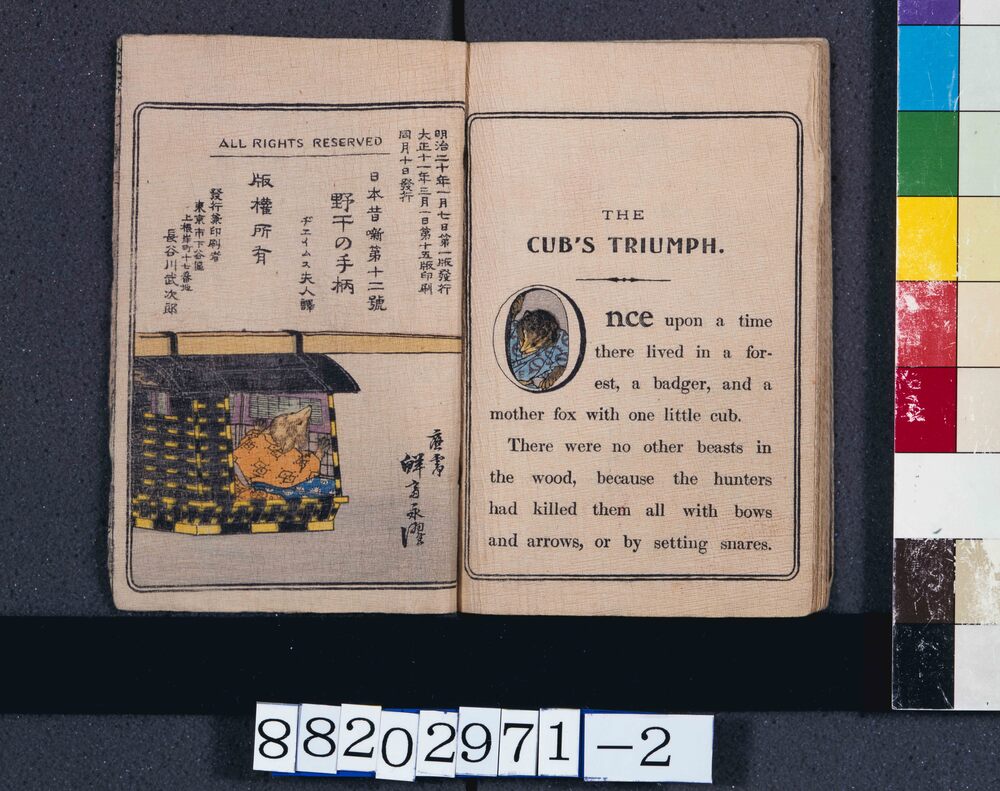 ALL RIGHTS RESERVED
明治二十年一月七日第一版發行
大正十一年三月一日第十五版印刷
同月十日發行
日本昔噺第十二號
野干の手柄
ヂエイムス夫人譯
版權所有
發行兼印刷者
東京市下谷區
上根岸町十七番地
長谷川武次郎
THE
CUB'S TRIUMPH.
Once upon a time
there lived in a for-
est, a badger, and a
mother fox with one little cub.
There were no other beasts in
the wood, because the hunters
had killed them all with bows
and arrows, or by setting snares.
88202971-2